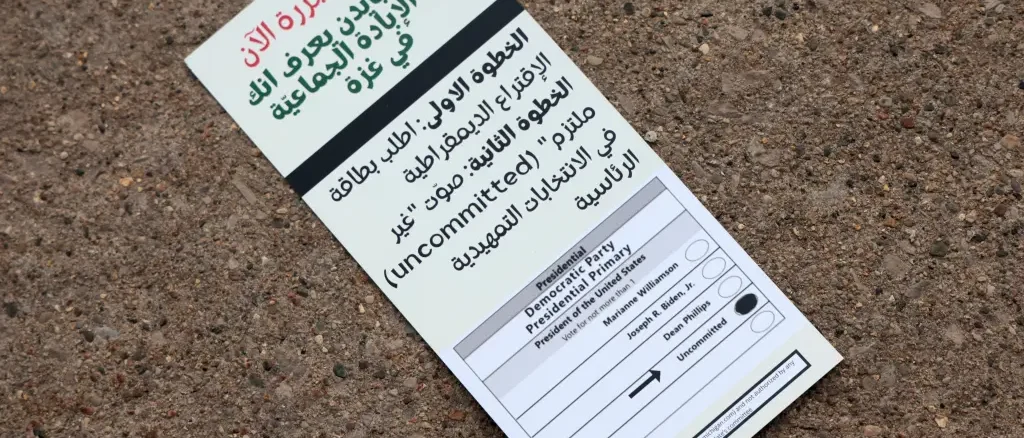 الآن
يعرف انك
الإبادة الجماعيّة
في غزة
الخطوة الاولى: اطلب بطاقة
الإقتراع الديمقراطية
الخطوة الثانية: صوّت "غير
ملتزم" (uncommitted)
في الانتخابات التمهيدية
الرئاسية
Presidential
Democratic Party
Presidential Primary
President of the United States
Vote for not more than 1
Marianne Williamson
Joseph R. Biden, Jr.
Dean Phillips
Uncommitted
and not authorized by any
committee